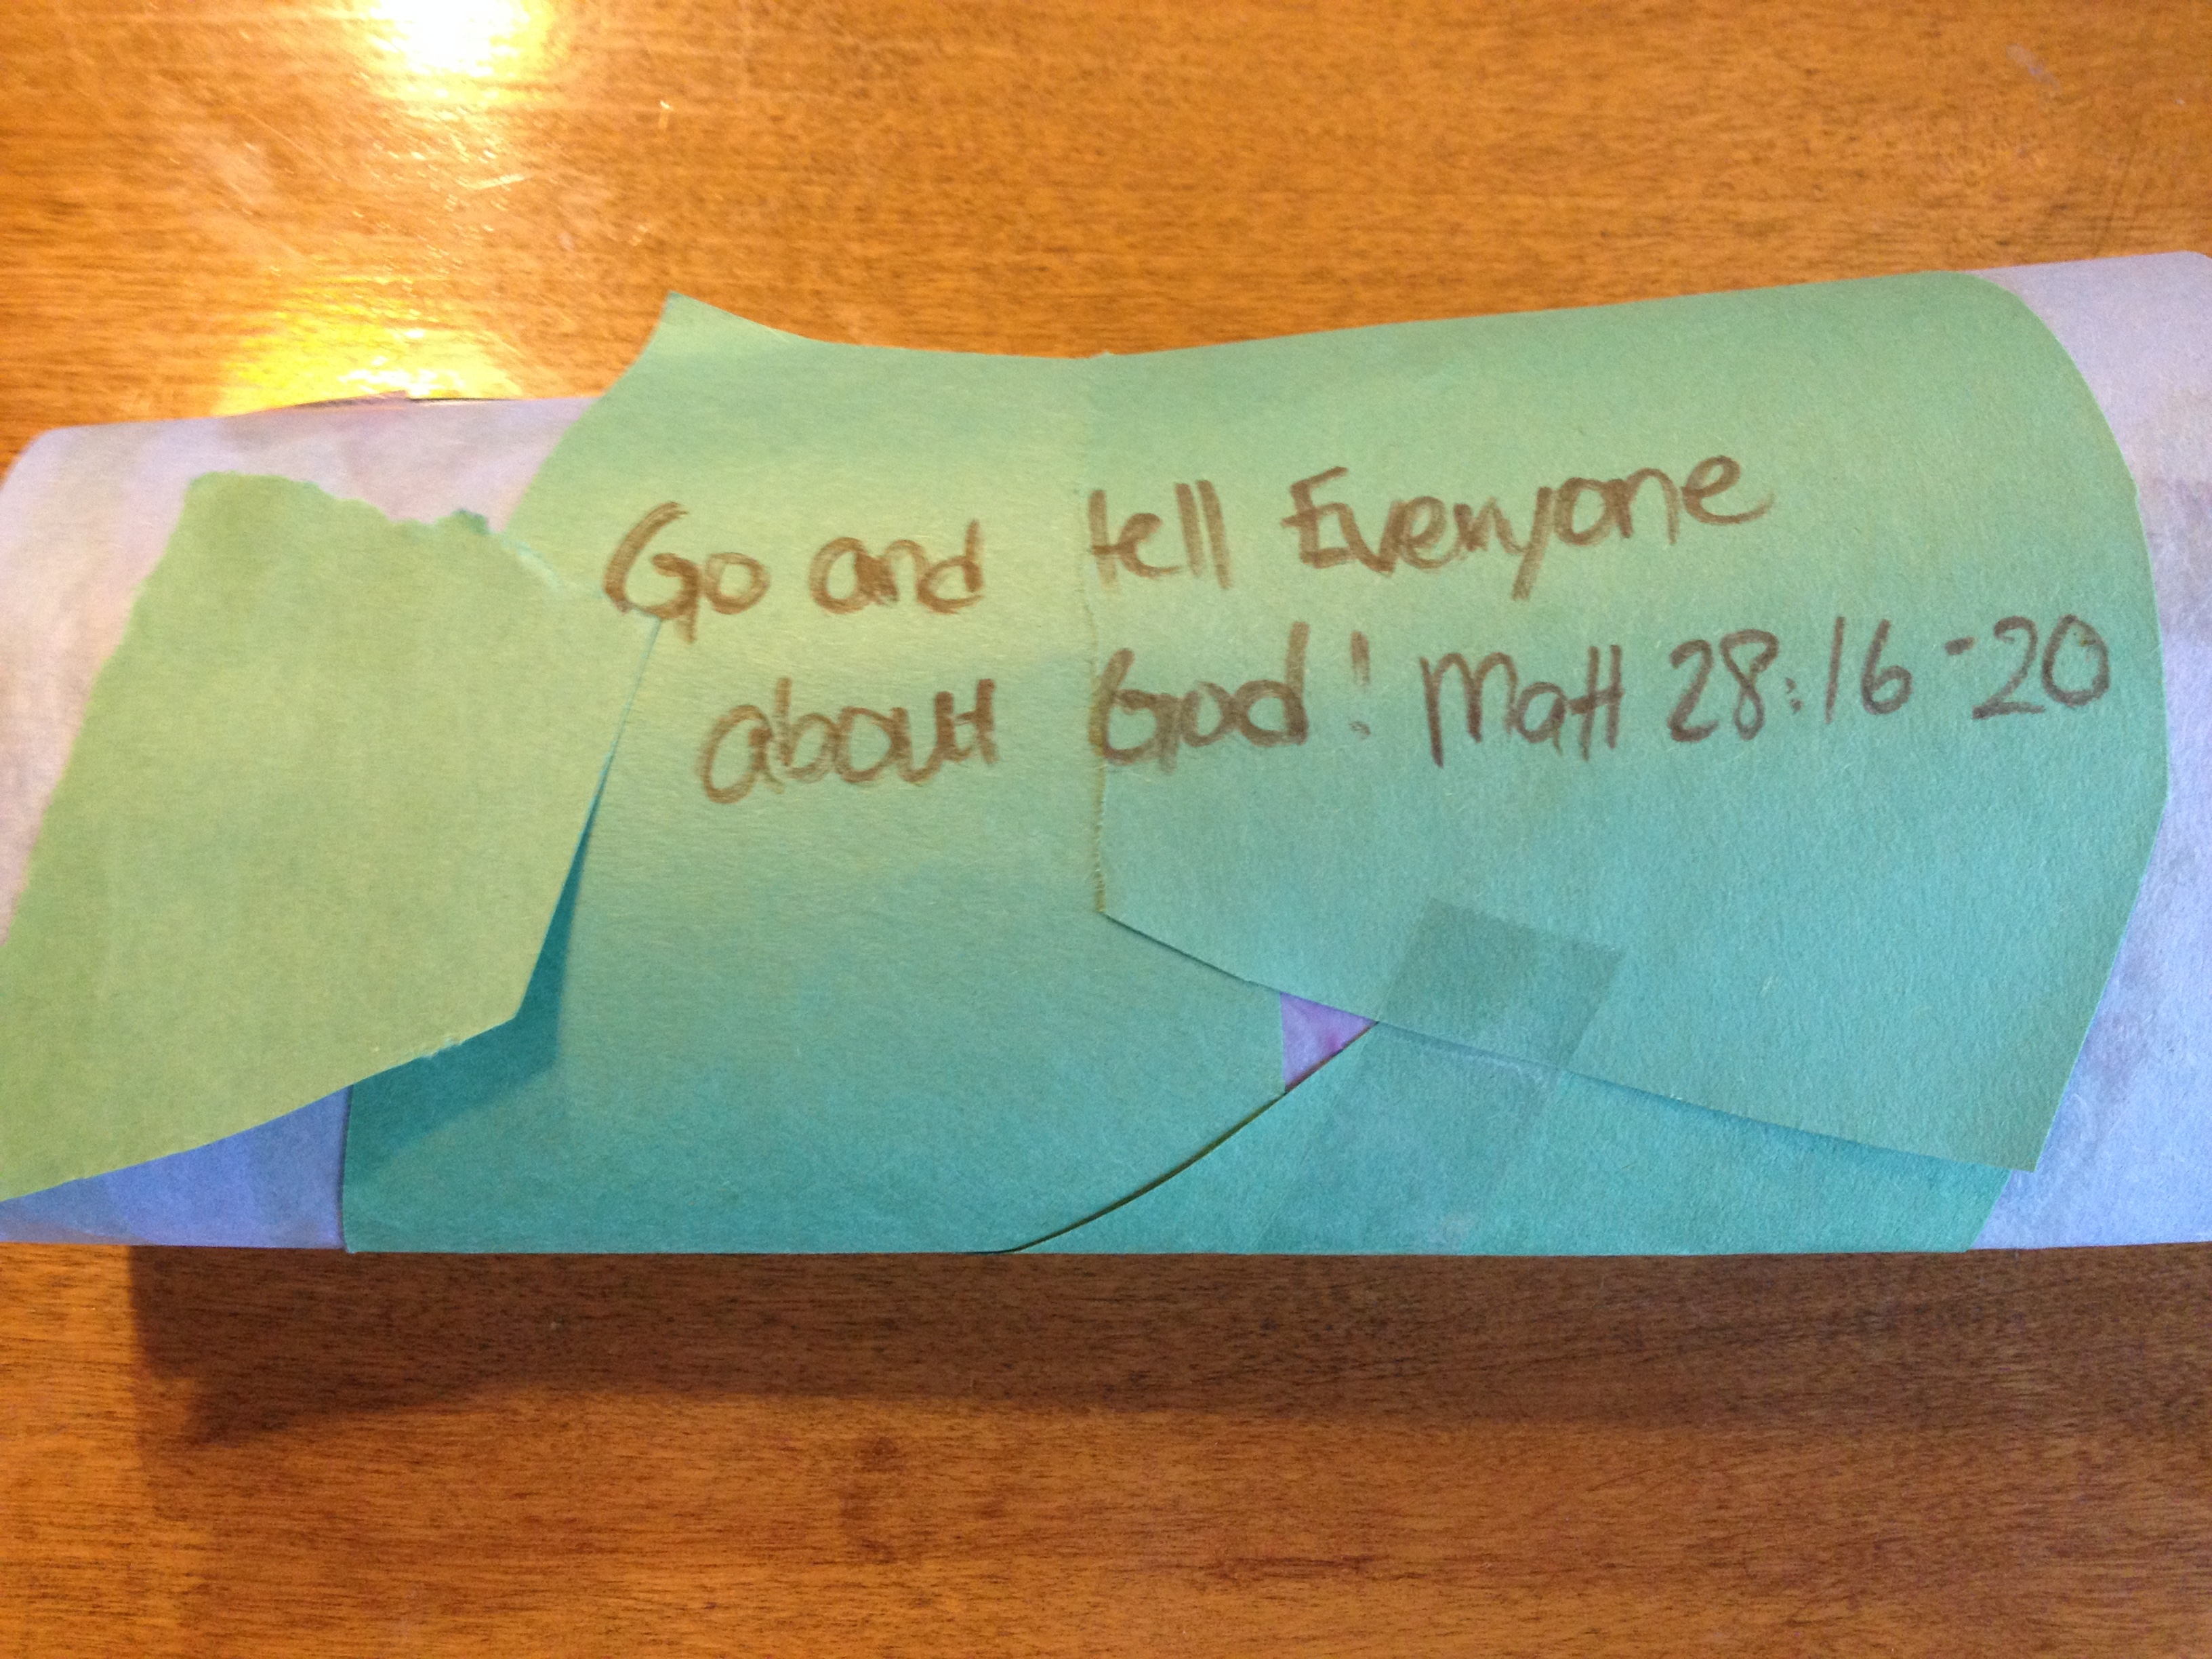 Go and tell Everyone
about God! Matt 28:16-20